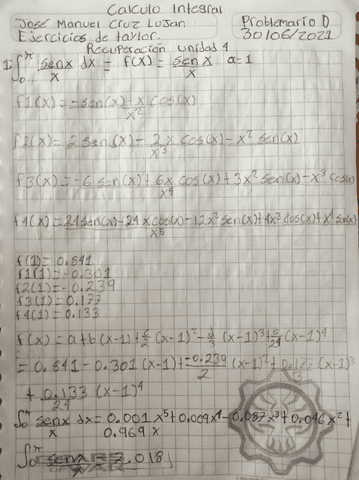 Calculo Integral
José Manuel Cruz Lujan
Problemario D
Ejercicios de taylor.
30/06/2021
Recuperación unidad 4
1. ∫₀^π sen x / x dx = f(x) = sen x / x a=1
f1(x) = -sen(x)+x cos(x) / x²
f2(x) = 2 sen(x) - 2x cos(x) - x² sen(x) / x³
f3(x) = -6 sen(x) + 6x cos(x) + 3x² sen(x) - x³ cos(x) / x⁴
f4(x) = 24 sen(x) - 24 x cos(x) - 12x² sen(x) + 4x³ cos(x) + x⁴ sen(x) / x⁵
f(1) = 0.841
f1(1) = -0.301
f2(1) = -0.239
f3(1) = 0.177
f4(1) = 0.133
f(x) = a+b(x-1)+c/2 (x-1)² - d/3 (x-1)³ + e/24 (x-1)⁴
= 0.841 - 0.301 (x-1) + -0.239/2 (x-1)² + 0.177/3 (x-1)³
+ 0.133/24 (x-1)⁴
∫₀^π sen x / x dx = 0.001 x⁵ + 0.009 x⁴ - 0.087 x³ + 0.046 x² +
0.969 x
∫₀^π sen x / x = 2.018